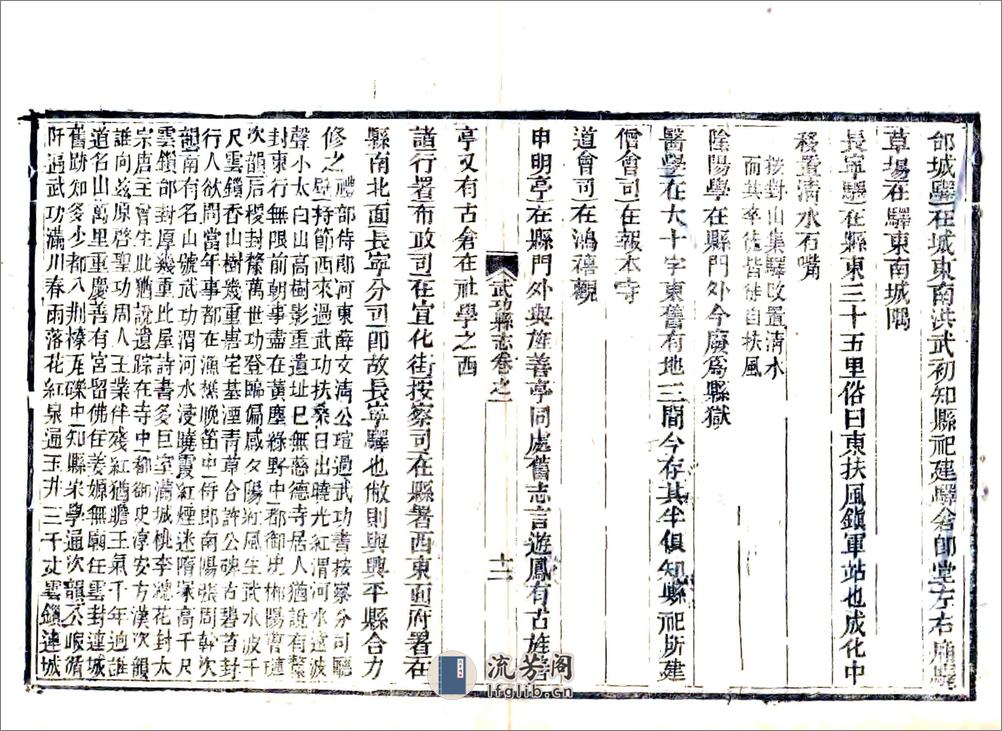 邰城驛在城東南洪武初知縣祀建驛倉卽堂左右廂驛
草場在驛東南城隅
長寧驛在縣東三十五里俗曰東扶風鎭軍站也成化中
移置清水石嘴
按對山集驛改置清水
而其卒徒皆徙自扶風
陰陽學在縣門外今廢爲縣獄
醫學在大十字東舊有地三間今存其半俱知縣祀所建
僧會司在報本寺
道會司在鴻禧觀
申明亭在縣門外與旌善亭同處舊志言遊鳳有古旌善
武功縣志卷之一
十二
亭又有古倉在社學之西
諸行署布政司在宜化街按察司在縣署西東面府署在
縣南北面長寧分司卽故長寧驛也敝則與興平縣合力
修之
禮部侍郎河東薛文淸公瑄過武功書按察分司廳
壁持節西來過武功扶桑日出曉光紅渭河水遠波
聲小太白山高樹影重遺址已無慈德寺居人猶說有斄
封東行無限前朝事盡在黃塵綠野中都御史郴陽曹璉
次韻后稷封斄萬世功登臨偏感夕陽紅風生武水波千
尺雲鎖香山樹幾重舊宅基湮青草合許公碑古碧苔封
行人欲問當年事都在漁樵晚笛中侍郎南陽張周幹次
韻南有名山號武功渭河水浸曉霞紅煙迷隋冢高千尺
雲鎖邰封厚幾重此屋詩書多巨室滿城桃李總花封太
宗唐主曾生此猶說遺踪在寺中都御史淳安方漢次韻
誰向茲原啓聖功周人王業伴殘紅猶瞻王氣千年迥誰
道名山萬里重慶善有宮留佛住姜嫄無廟任雲封連城
舊跡知多少都入荆榛瓦礫中知縣宋學通次韻不
阡過武功滿川春雨落花紅泉通玉井三千丈雲鎖連城